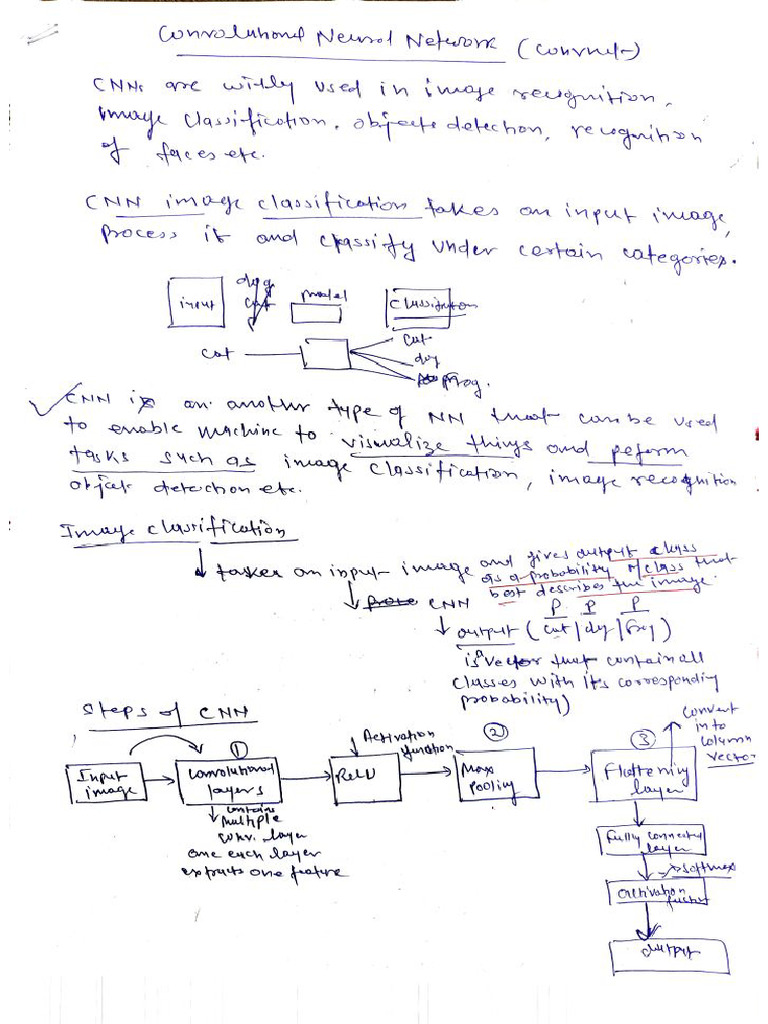 Convolutional Neural Network (Convnet)
CNNs are widly used in image recognition,
image classification, objects detection, recognition
of faces etc.
CNN image classification takes an input image,
process it and classify under certain categories.
dog
input cat model Classification
cat
cat dog
frog.
CNN is an another type of NN that can be used
to enable machine to visualize things and peform
tasks such as image classification, image recognition
object detection etc.
Image classification
takes an input image and gives output class
as a probability of class that
best describes the image.
CNN
P P P
output (cat/dog/frog)
is a vector that contain all
classes with its corresponding
probability)
Steps of CNN
convert
in to
column
vector
Activation
function
① ② ③
Input
image
Convolutional
layers
ReLU
Max
pooling
Flattening
layer
contains
multiple
conv. layer
one each layer
extracts one feature
Fully connected
layer
softmax
activation
function
output